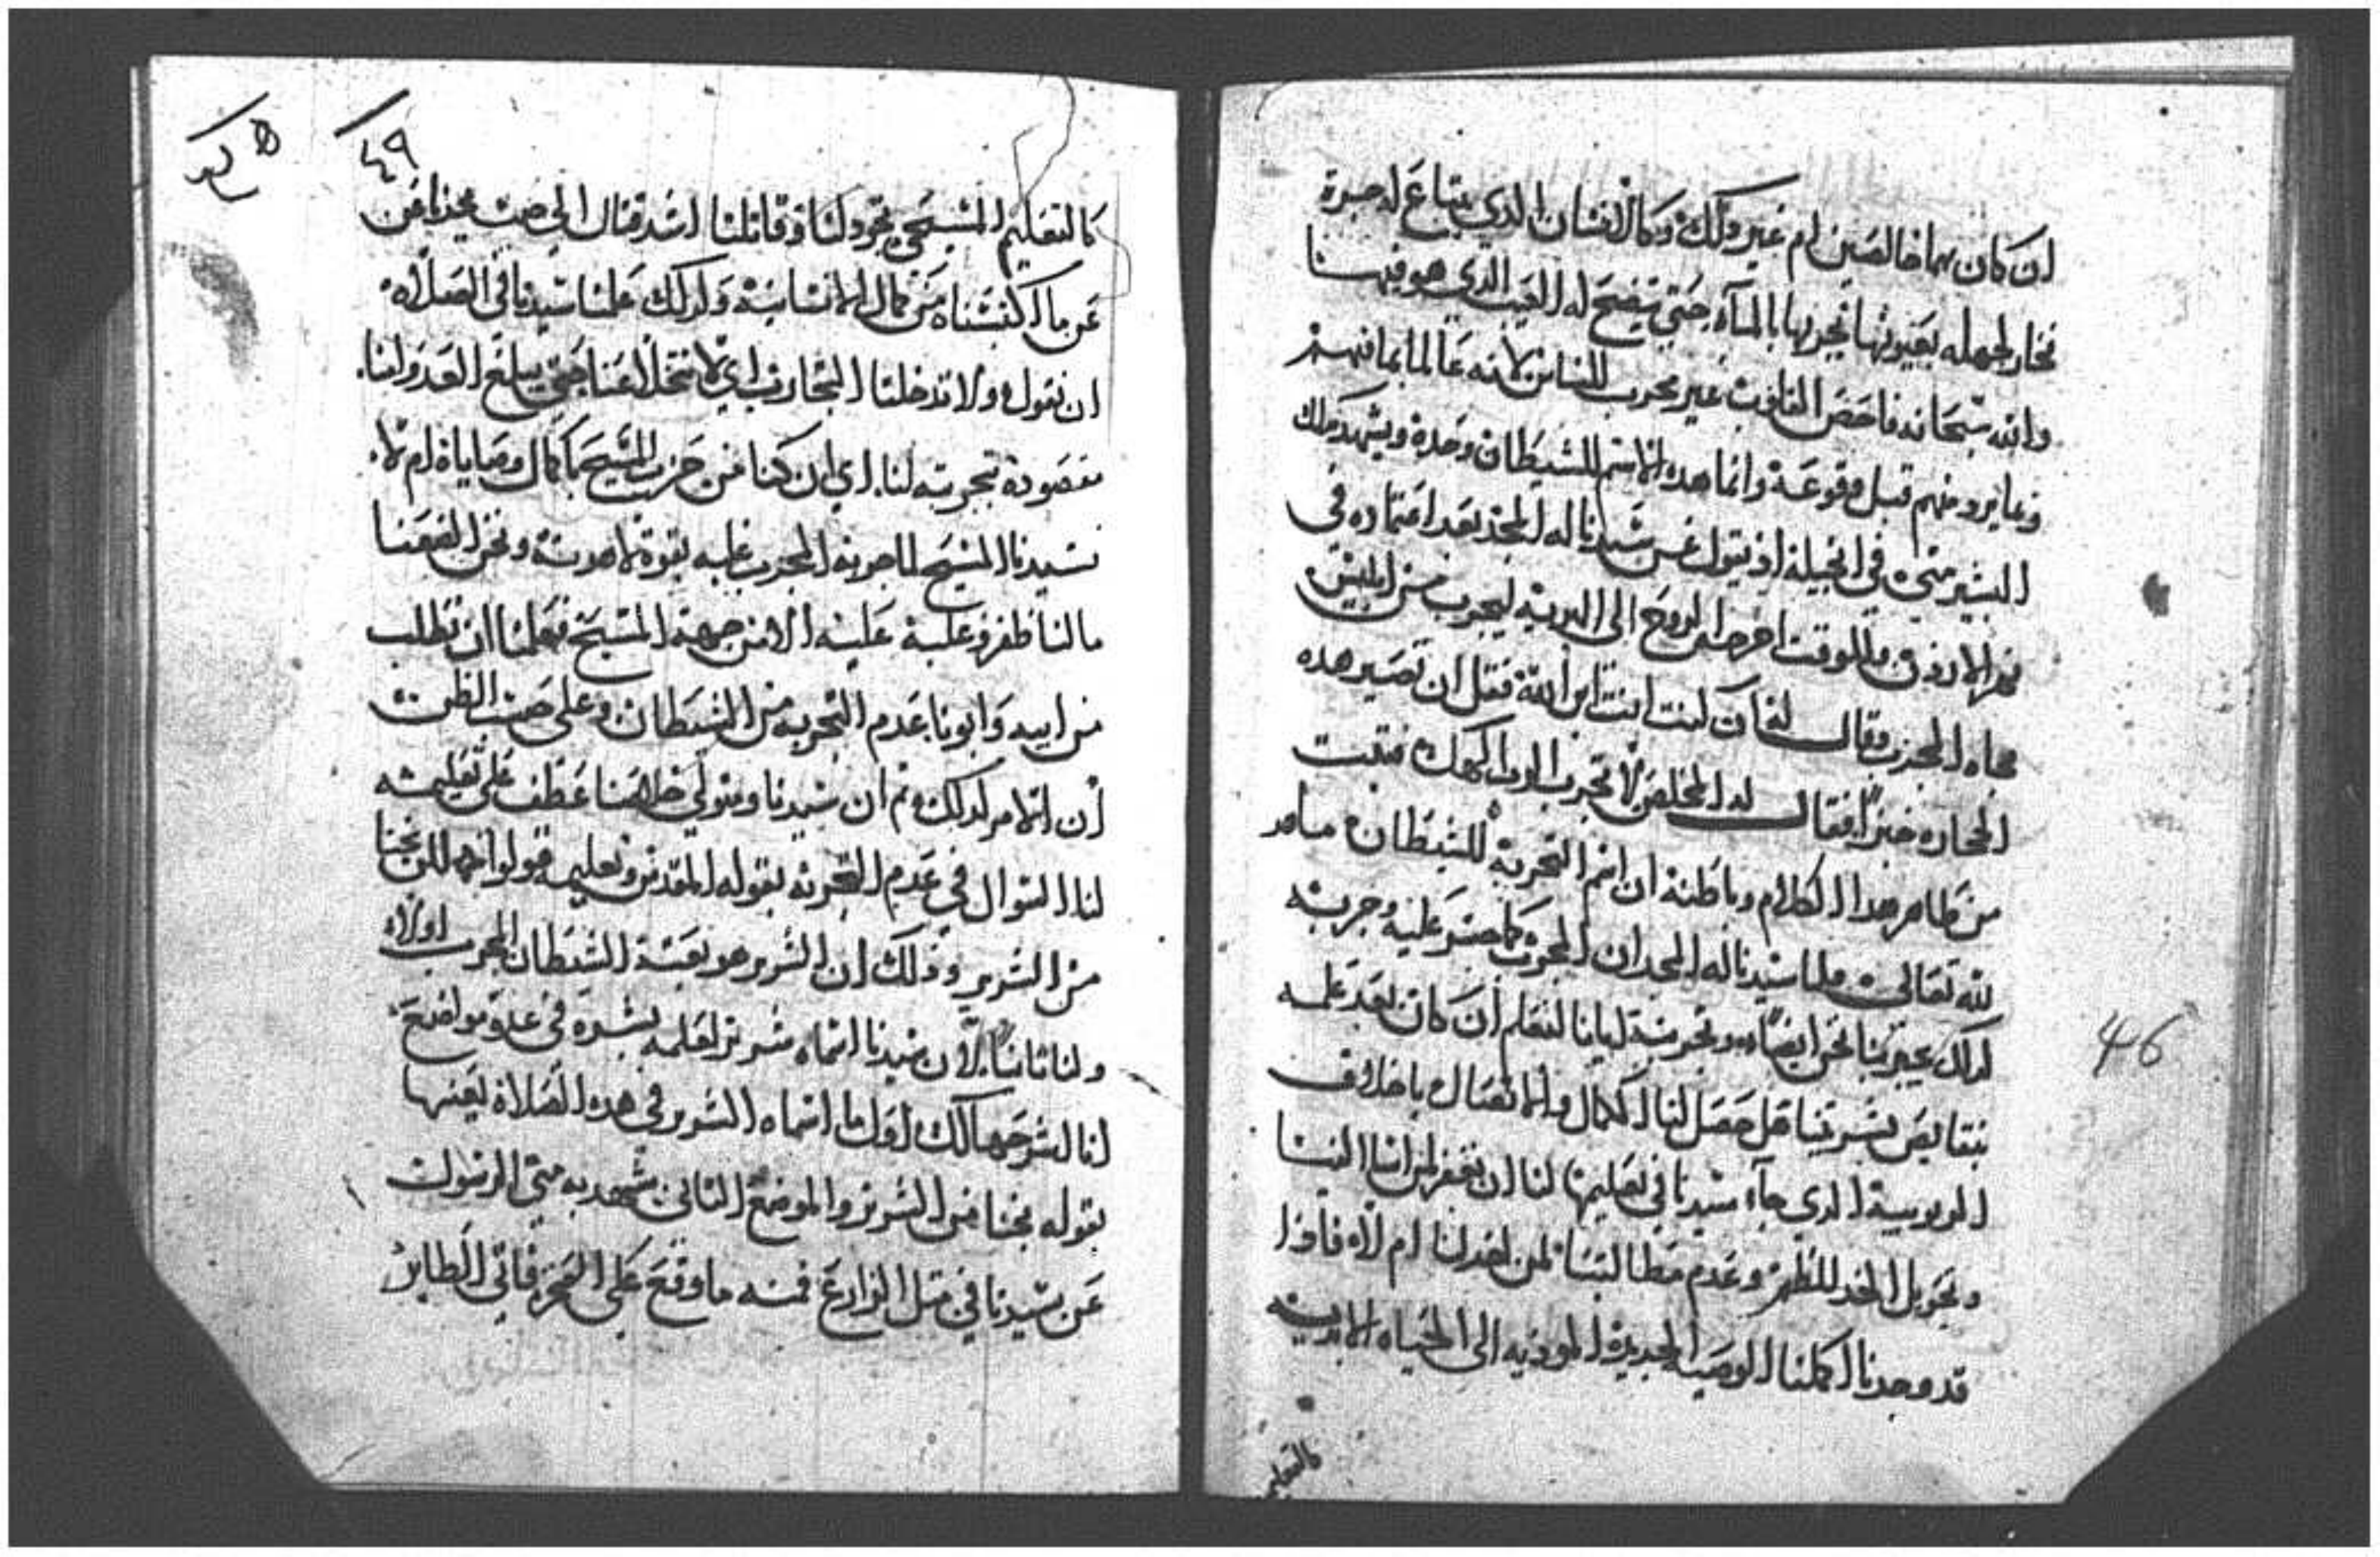 ان كان سما خالصين ام غير دلك وكالانسان الدي يبتاع له جرة
فخار لجهله بعيوبها يجربها بالمآء حتي يتضح له العيب الدي هو فيها
والله سبحانه فاحص القلوب غير مجرب للناس لانه عالما بما فيهم
وعا يرو منهم قبل وقوعة وانما هده الاسم للشيطان وحدة ويشهد بدلك
البشير متي في انجيله اذ يقول عن سيدنا له المجد بعد اعتماده في
نهر الاردن وللوقت اخرجه الروح الى البرية ليجرب من ابليس
فجاه المجرب وقال له ان كنت انت ابن الله فقل ان تصير هده
الحجاره خبزاً فقال له المخلص لا تجرب الرب الهك فتبت
من ظاهر هدا الكلام وباطنة ان اسم التجربة للشيطان ماهو
لله تعالى ولما سيدنا له المجد ان المجرب كما جسر عليه وجربه
كدلك يجربنا نحن ايضاً وتجربتة ايانا لنعلم ان كان بعد علمه
بنقايص بشريتنا هل حصل لنا الكمال والاتصال باخلاق
الربوبية الدي جآء سيدنا في تعليمها لنا ان نغفر لمن اسا الينا
وتحويل الخد للطم وعدم مطالبتنا لمن اخد لنا ام لا فادا
قد وجدنا اكملنا الوصية الجديدة المودية الى الحياه الابدية
كالتعليم
٤٩
كالتعليم المسيحي تجرد لنا وقاتلنا اشد قتال الي حيت يجدنا من
عن ما اكتسبناه من كمال الانسانية ولدلك علمنا سيدنا في الصلاه
ان نقول ولا تدخلنا التجارب اي لا تتخلا عنا حتي يبلغ العدو لنا
مقصوده بتجربته لنا اي ان كنا من حزب المسيح بكمال وصاياه ام لا
فسيدنا المسيح لما جربه المجرب غلبه بقوة لاهوته ونحن لضعفنا
مالنا ظفر وغلبة عليه الا من جهة المسيح فعلمنا ان نطلب
من ابيه وابونا عدم التجربه من الشيطان وعلى حسب الظن
ان الامر كدلك ثم ان سيدنا ومتولي خلاصنا عطف على تعليمه
لنا السوال في عدم التجربه بقوله المقدس وتعليمه قولوا اللهم نجنا
من الشرير ودلك ان الشرير هو بعينة الشيطان المجرب اولاً
ولنا ثانياً لان سيدنا اسماه شرير لعلمه بشره في عدة مواضع
لنا لشرحها لك اولاً اسماه الشرير في هده الصلاة بعينها
بقوله نجنا من الشرير والموضع الثاني شهد به متى الرسول
عن سيدنا في مثل الزارع فمنه ما وقع على الصخر فاتى الطاير
46